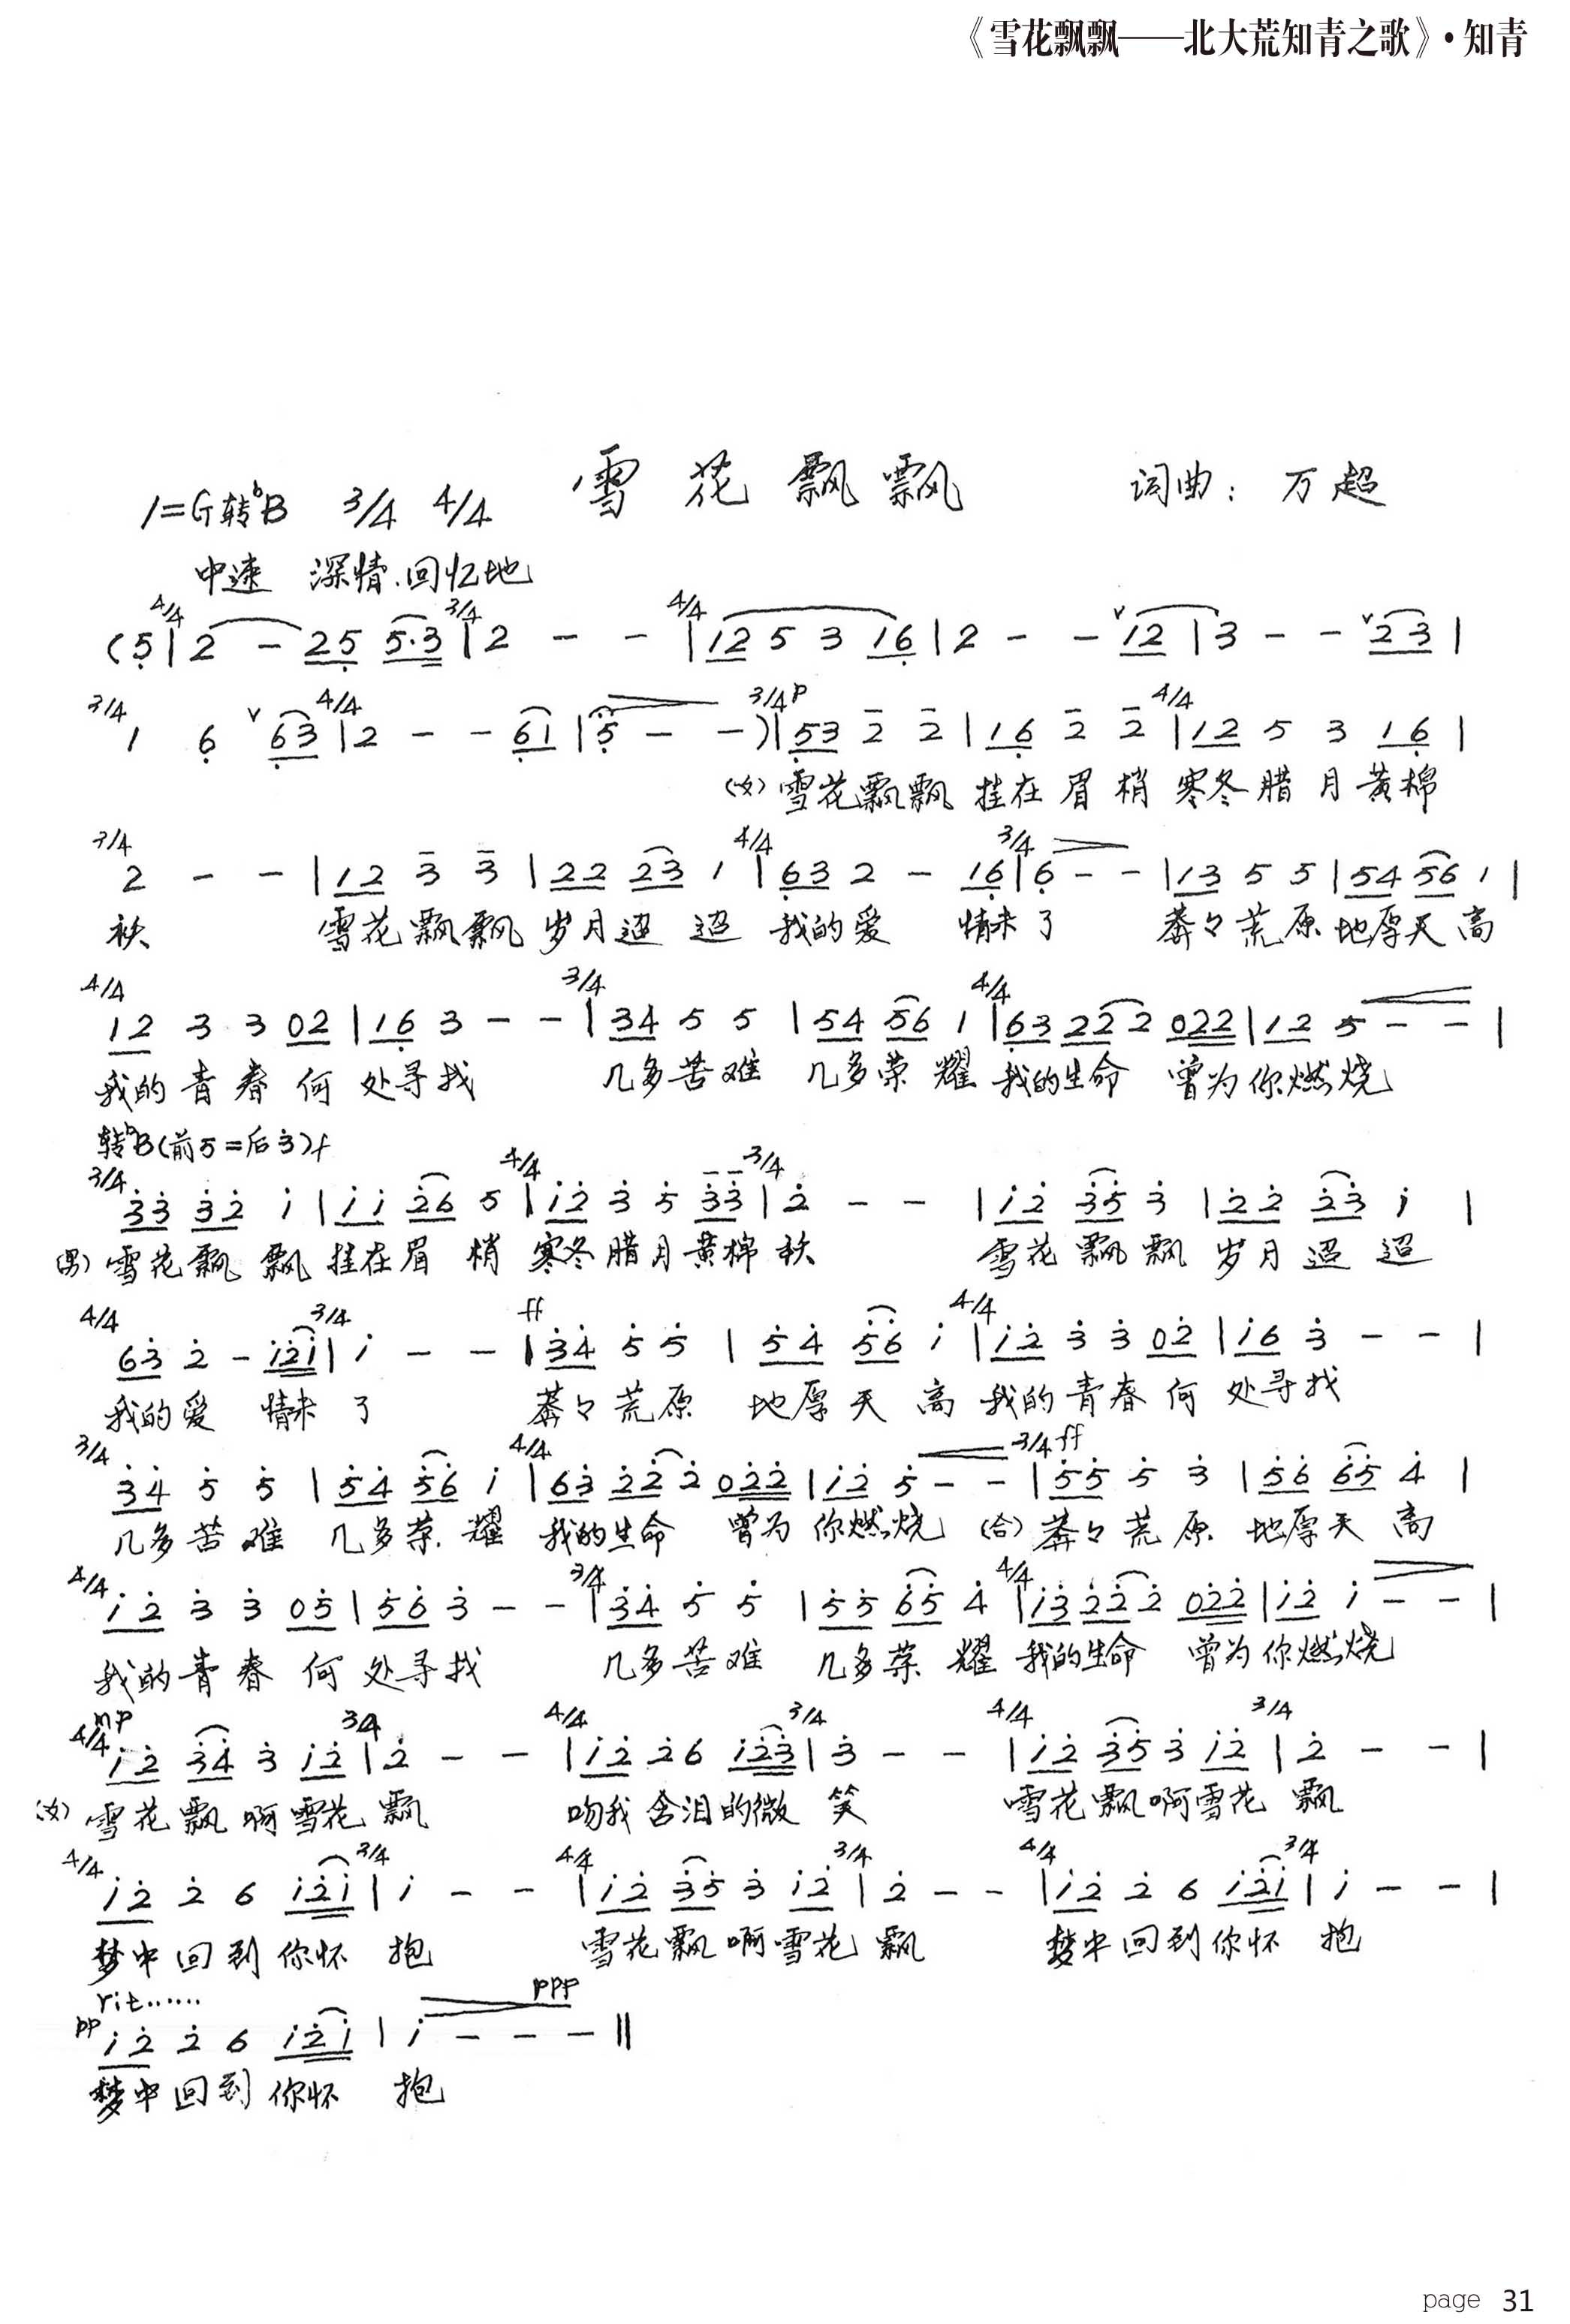 《雪花飘飘——北大荒知青之歌》·知青
雪花飘飘 词曲：万超
1=G转♭B 3/4 4/4
中速 深情.回忆地
4/4 3/4 4/4
(5|2 - 25 5·3|2 - -|12 5 3 16|2 - - ∨12|3 - - ∨23|
3/4 4/4 3/4 p 4/4
1 6 ∨63|2 - - 61|5 - -)|53 2 2|16 2 2|12 5 3 16|
(女)雪花飘飘 挂在眉梢 寒冬腊月黄棉
3/4 4/4 3/4
2 - -|12 3 3|22 23 1|63 2 - 16|6 - -|13 5 5|54 56 1|
袄 雪花飘飘 岁月迢迢 我的爱 情未了 莽々荒原 地厚天高
4/4 3/4 4/4
12 3 3 02|16 3 - -|34 5 5|54 56 1|63 22 2 022|12 5 - -|
我的青春何处寻找 几多苦难 几多荣耀 我的生命 曾为你燃烧
转♭B(前5=后3)f
3/4 4/4 3/4
33 32 1|11 26 5|12 3 5 33|2 - -|12 35 3|22 23 1|
(男)雪花飘飘 挂在眉梢 寒冬腊月黄棉袄 雪花飘飘 岁月迢迢
4/4 3/4 ff 4/4
63 2 - 121|1 - -|34 5 5|54 56 1|12 3 3 02|16 3 - -|
我的爱 情未了 莽々荒原 地厚天高 我的青春何处寻找
3/4 4/4 3/4 ff
34 5 5|54 56 1|63 22 2 022|12 5 - -|55 5 3|56 65 4|
几多苦难 几多荣耀 我的生命 曾为你燃烧 (合)莽々荒原 地厚天高
4/4 3/4 4/4
12 3 3 05|56 3 - -|34 5 5|55 65 4|13 22 2 022|12 1 - -|
我的青春何处寻找 几多苦难 几多荣耀 我的生命 曾为你燃烧
mp
4/4 3/4 4/4 3/4 4/4 3/4
12 34 3 12|2 - -|12 2 6 123|3 - -|12 35 3 12|2 - -|
(女)雪花飘啊雪花飘 吻我含泪的微笑 雪花飘啊雪花飘
4/4 3/4 4/4 3/4 4/4 3/4
12 2 6 121|1 - -|12 35 3 12|2 - -|12 2 6 121|1 - -|
梦中回到你怀抱 雪花飘啊雪花飘 梦中回到你怀抱
rit…… ppp
pp 12 2 6 121|1 - - -‖
梦中回到你怀抱
page 31